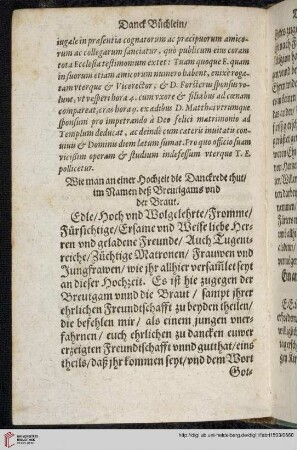 Danck Büchlein/
iugale in præsentia cognatorum ac præcipuorum amico-
rum ac collegarum sanciatur, quò publicum eius coram
tota Ecclesia testimonium extet: Tuam quoque E. quam
in suorum etiam amicorum numero habent, enixè roga-
tam vterque & Vicerector, & D. Forsterus sponsus vo-
lunt, vt vesperi hora 4. cum vxore & filiabus ad cœtum
compareat, cras horâ 9. ex ædibus D. Matthæi vtrumque
sponsum pro impetrando à Deo felici matrimonio ad
Templum deducat, ac deinde cum cæteris inuitatis con-
viuis & Dominis diem lætum sumat. Pro quo officio suam
vicissim operam & studium indefessum vterque T. E.
pollicetur.
Wie man an einer Hochzeit die Danckrede thut/
im Namen deß Breutigams vnd
der Braut.
Edle/Hoch vnd Wolgelehrte/Fromme/
Fürsichtige/Ersame vnd Weise liebe Her-
ren vnd geladene Freunde/Auch Tugent-
reiche/Züchtige Matronen/Frauwen vnd
Jungfrawen/wie jhr allhier versamlet seyt
an dieser Hochzeit. Es ist hie zugegen der
Breutgam vnnd die Braut/sampt jhrer
ehrlichen Freundtschafft zu beyden theilen/
die befehlen mir/als einem jungen vner-
fahrnen/euch ehrlichen zu dancken euwer
erzeigten Freundtschafft vnnd gutthat/eins
theils/daß jhr kommen seyt/vnd dem Wort
Got-
http://digi.ub.uni-heidelberg.de/diglit/fabri1593/0660